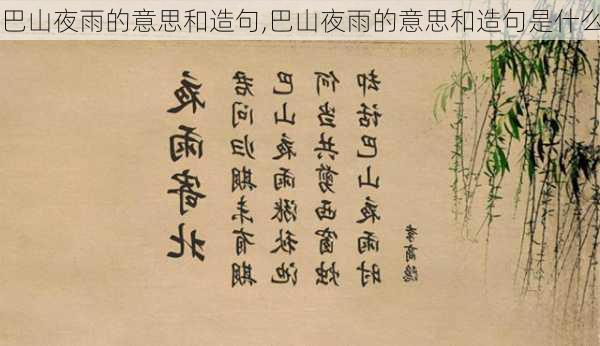 巴山夜雨的意思和造句,巴山夜雨的意思和造句是什么
夜雨寄北
君问归期未有期
巴山夜雨涨秋池
何当共剪西窗烛
却话巴山夜雨时
李商隐